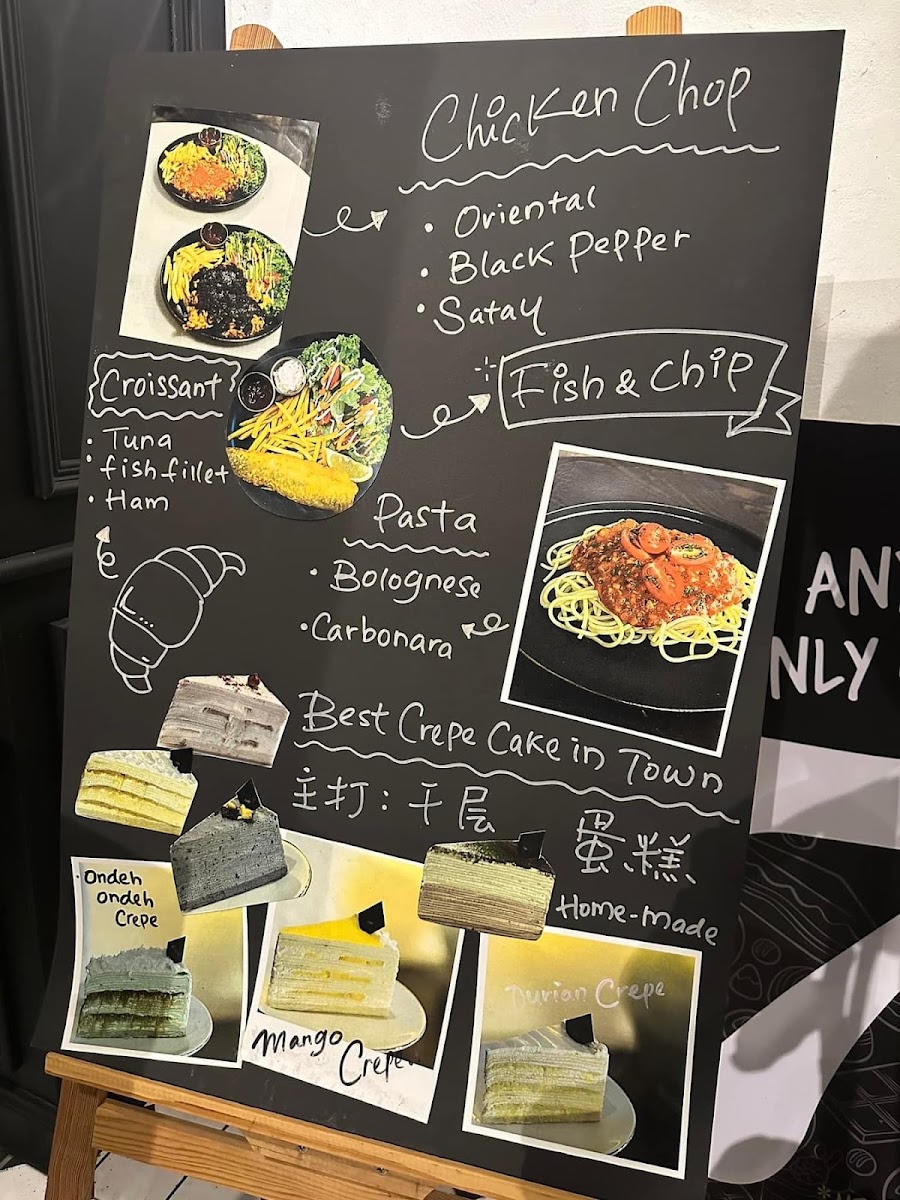 Chicken Chop
• Oriental
• Black Pepper
• Satay
Croissant
• Tuna
• fish fillet
• Ham
Fish & Chip
Pasta
• Bolognese
• Carbonara
Best Crepe Cake in Town
主打: 千层
蛋糕
Home-made
Ondeh
Ondeh
Crepe
Mango
Crepe
Durian Crepe
NLY